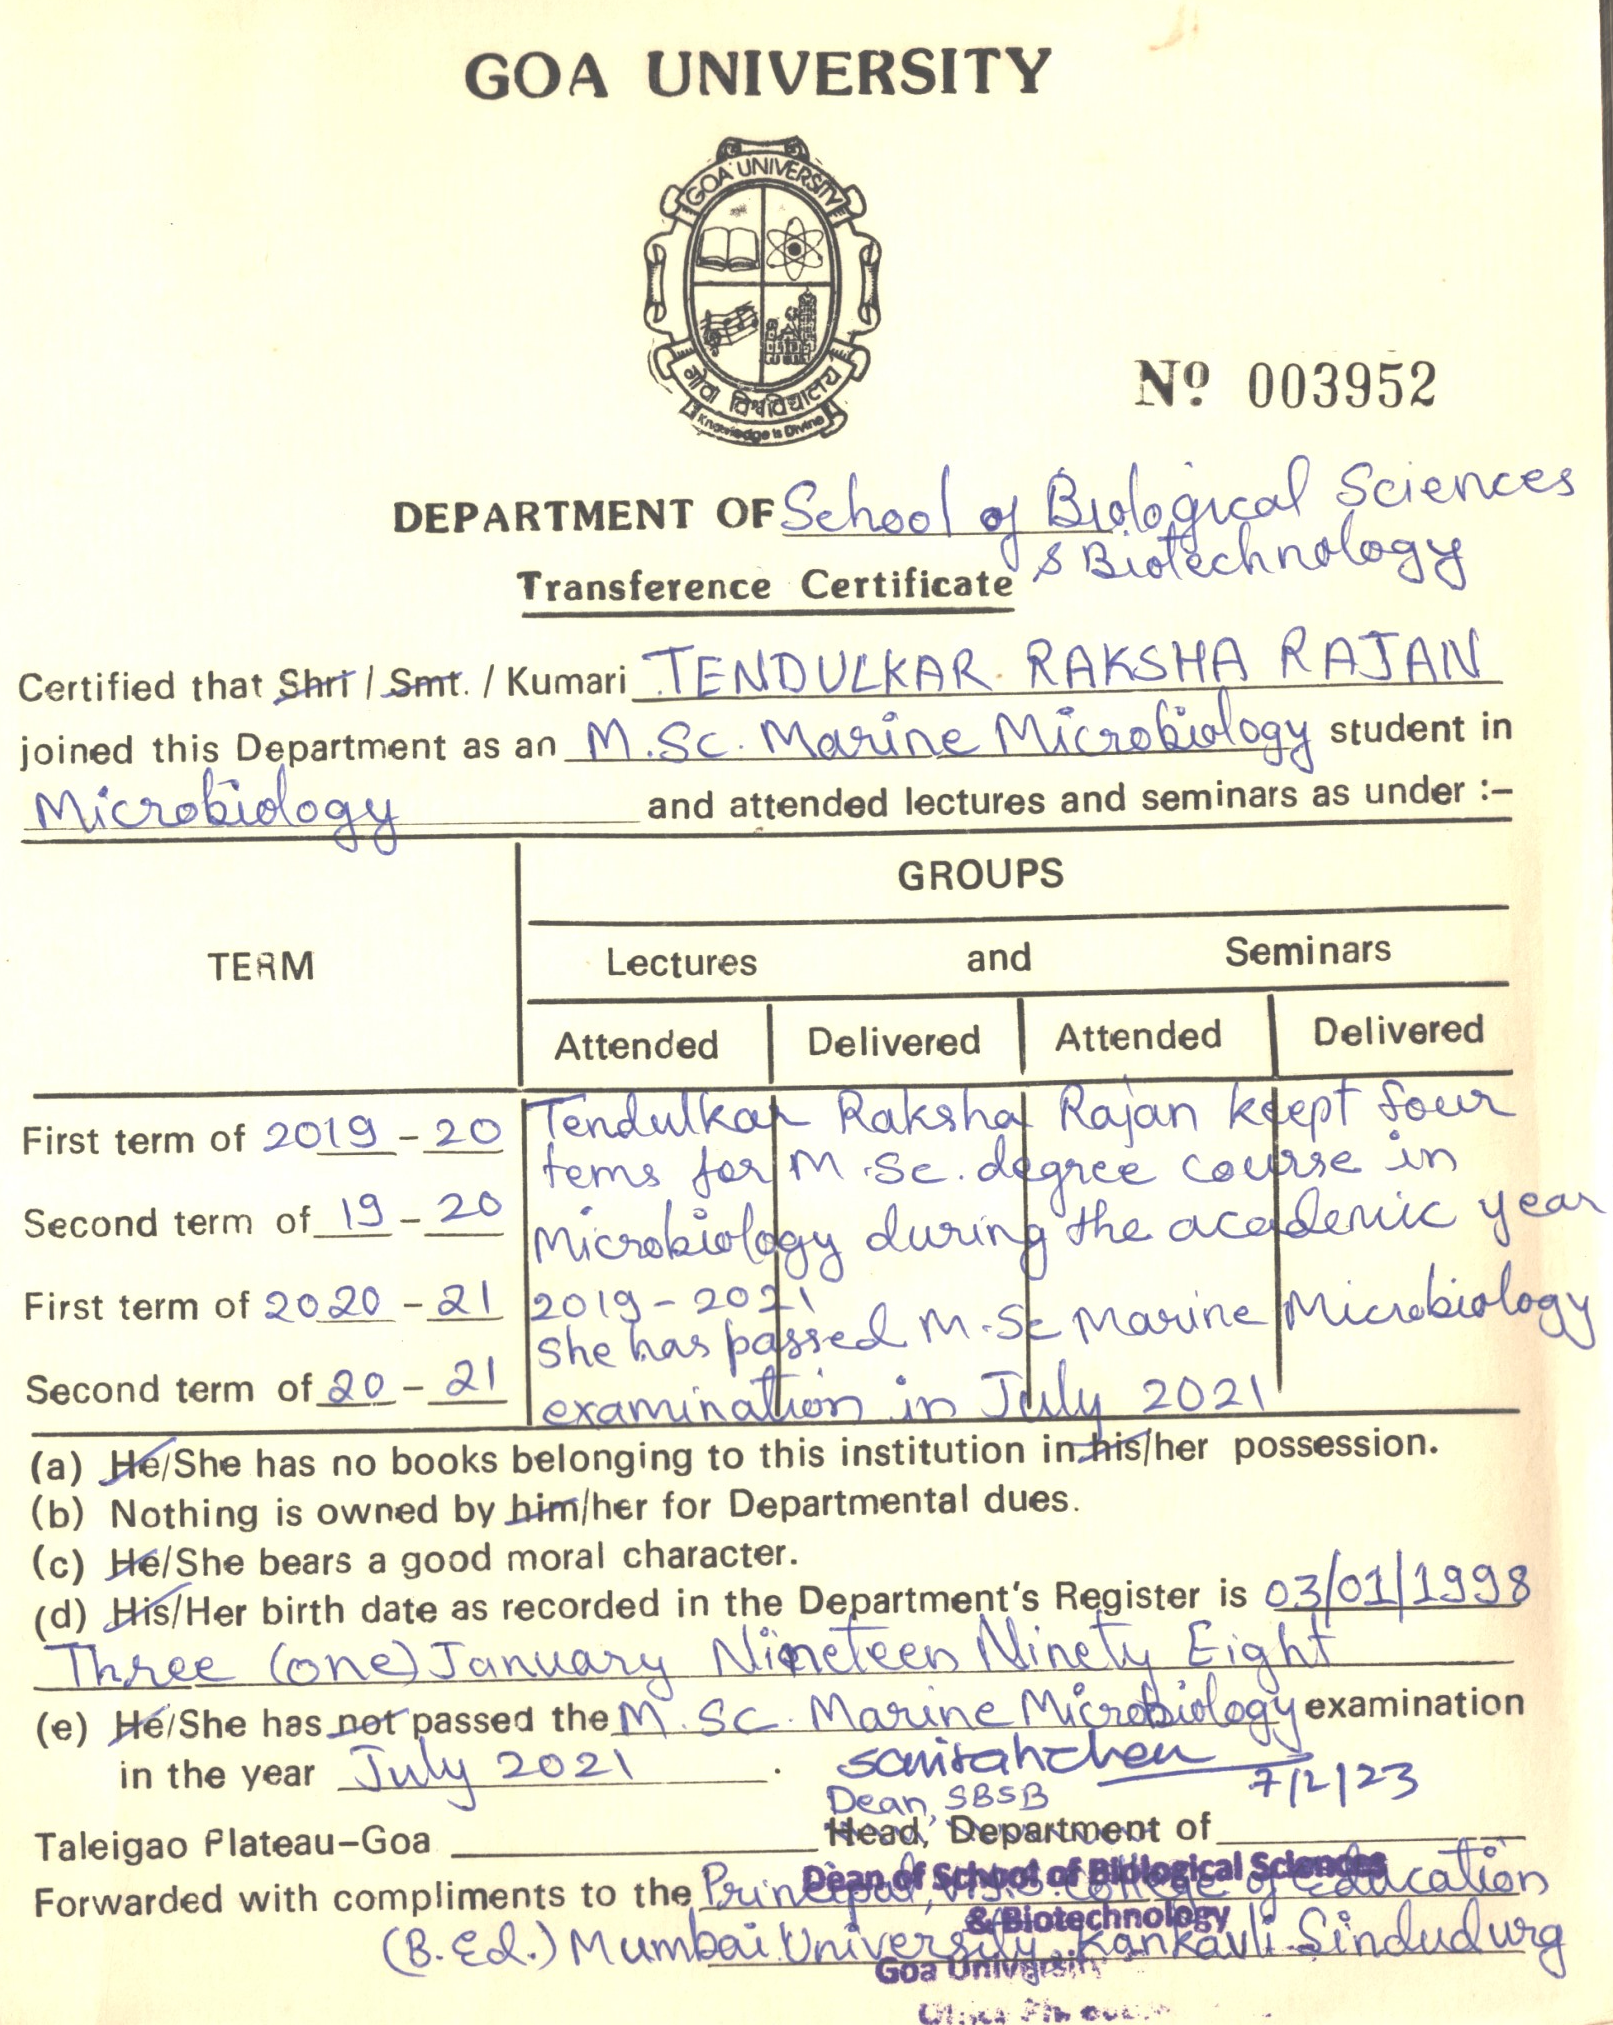 GOA UNIVERSITY
GOA UNIVERSITY
गोवा विश्वविद्यालय
Knowledge is Divine
Nº 003952
DEPARTMENT OF School of Biological Sciences
& Biotechnology
Transference Certificate
Certified that Shri / Smt. / Kumari TENDULKAR RAKSHA RAJAN
joined this Department as an M.Sc. Marine Microbiology student in
Microbiology and attended lectures and seminars as under :–
GROUPS
TERM
Lectures and Seminars
Attended Delivered Attended Delivered
First term of 2019 – 20
Second term of 19 – 20
First term of 2020 – 21
Second term of 20 – 21
Tendulkar Raksha Rajan keept four
tems for M.Sc. degree course in
Microbiology during the academic year
2019 - 2021
She has passed M.Sc Marine Microbiology
examination in July 2021
(a) He/She has no books belonging to this institution in his/her possession.
(b) Nothing is owned by him/her for Departmental dues.
(c) He/She bears a good moral character.
(d) His/Her birth date as recorded in the Department's Register is 03/01/1998
Three (one) January Nineteen Ninety Eight
(e) He/She has not passed the M.Sc. Marine Microbiology examination
in the year July 2021.
7/2/23
Dean, SBSB
Taleigao Plateau–Goa Head, Department of
Dean of School of Biological Sciences
Forwarded with compliments to the Principal, College of Education
& Biotechnology
(B.Ed.) Mumbai University, Kankavli Sindudurg
Goa University